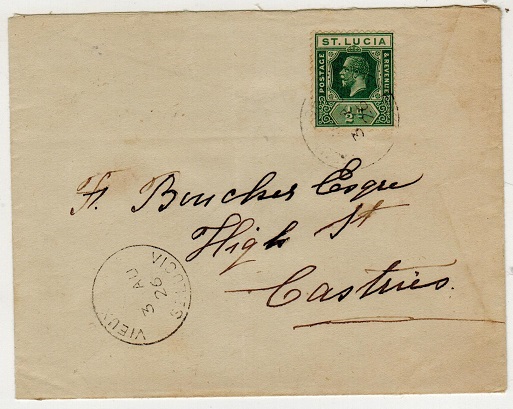 ST. LUCIA
POSTAGE
& REVENUE
3
F. Boucher Esqre
High St
Castries.
VIEUX
ST LUCIA
3
AU
26